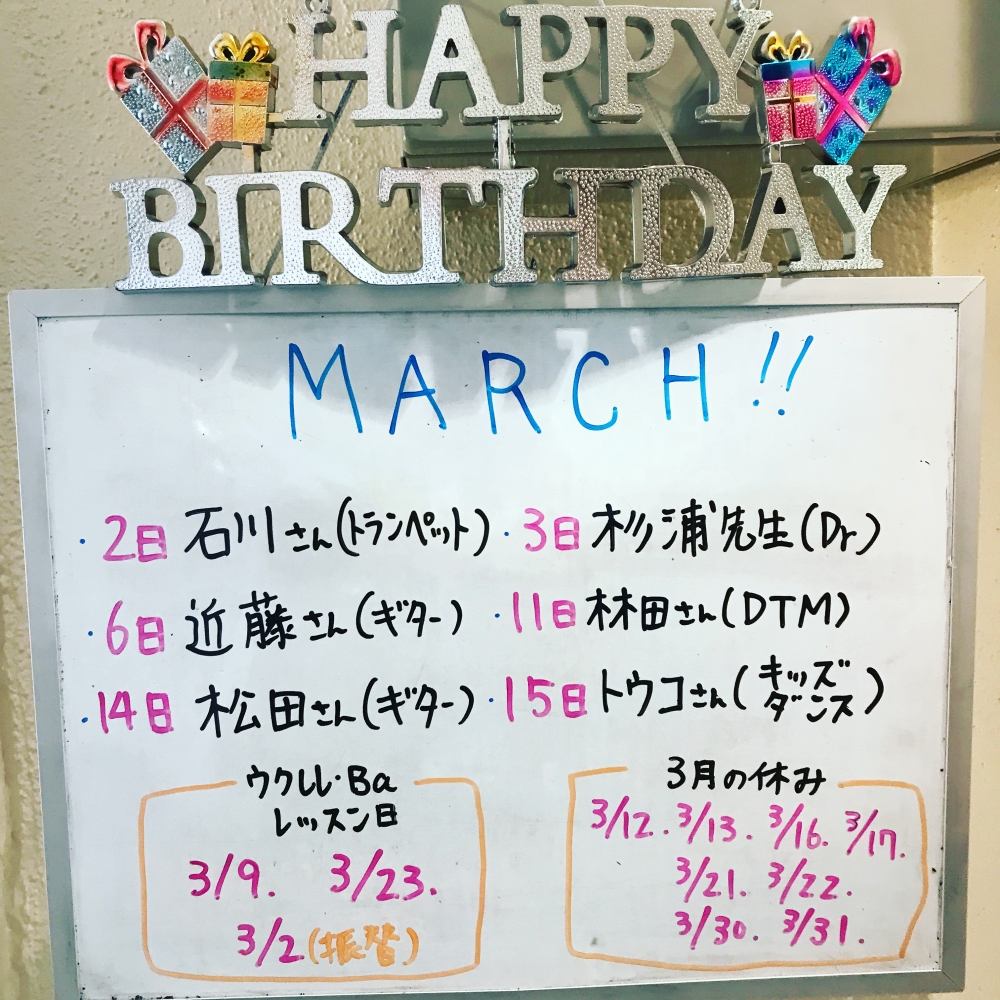 HAPPY
BIRTHDAY
MARCH!!
・2日 石川さん(トランペット)・3日 杉浦先生(Dr)
・6日 近藤さん(ギター)・11日 林田さん(DTM)
・14日 松田さん(ギター)・15日 トウコさん(キッズダンス)
ウクレレ・Ba
レッスン日
3/9. 3/23.
3/2(振替)
3月の休み
3/12. 3/13. 3/16. 3/17.
3/21. 3/22.
3/30. 3/31.